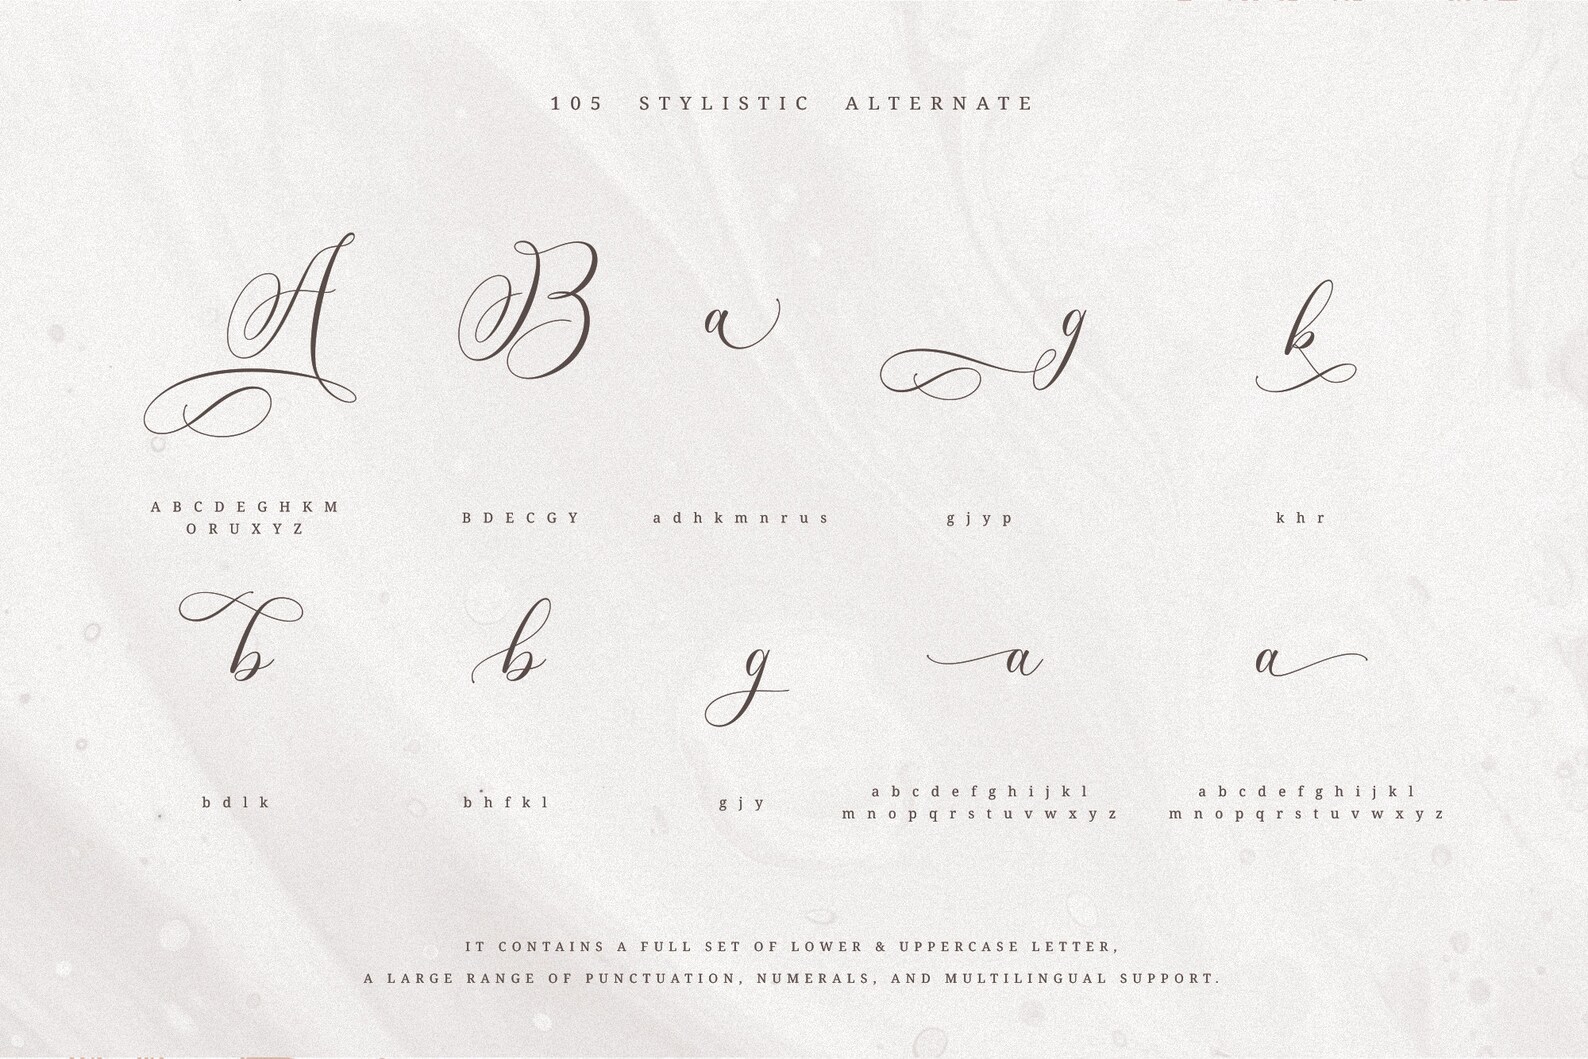 105 STYLISTIC ALTERNATE
A B a g k
A B C D E G H K M
O R U X Y Z
B D E C G Y
a d h k m n r u s
g j y p
k h r
b b g a a
b d l k
b h f k l
g j y
a b c d e f g h i j k l
m n o p q r s t u v w x y z
a b c d e f g h i j k l
m n o p q r s t u v w x y z
IT CONTAINS A FULL SET OF LOWER & UPPERCASE LETTER,
A LARGE RANGE OF PUNCTUATION, NUMERALS, AND MULTILINGUAL SUPPORT.